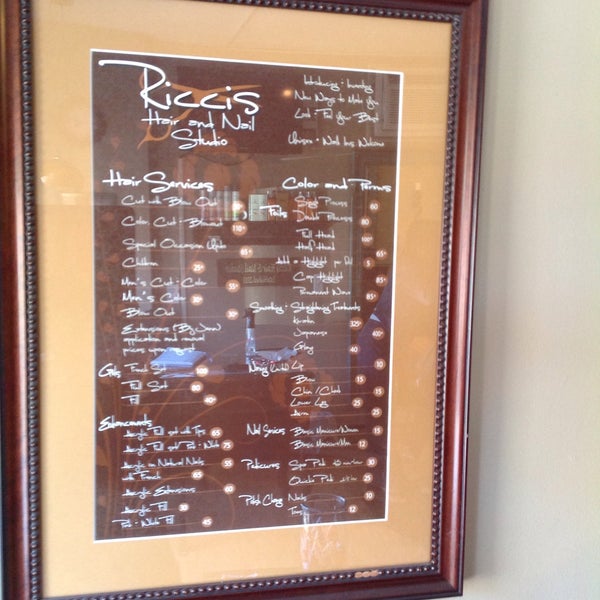 Riccis
Hair and Nail
Studio
Introducing
New Ways to Make You
Look Feel Your Best
Unisex Walk Ins Welcome
Hair Services
Cut with Blow Out
Color Cut - Blowout 110+
Special Occasion Updo 65+
Children 25+
Men's Cut - Color 55+
Men's Color 30+
Blow Out 30+
Extensions
application and removal
prices upon request
Gels
French Set 100
Full Set 80
Fill 40+
Enhancements
Acrylic Full set with Tips 65
Acrylic Full set Pink - White 75
Acrylic on Natural Nails 55
with French 65
Acrylic Extensions 60
Acrylic Fill 30
Pink - White Fill 45
Color and Perms
Foils
Single Process 60
Double Process 80
Full Head 100+
Half Head 80
Add a Highlight per foil 5
Cap Highlight 85+
Permanent Wave 85+
Smoothing - Straightening Treatments
Keratin 325+
Japanese 400+
Glossing 40
Waxing
Lip 10
Brow 15
Chin / Cheek 15
Lower Leg 25
Arm 25
Nail Services
Basic Manicure/Women 15
Basic Manicure/Men 12
Pedicures
Spa Pedi 30
Ouchi Pedi 25
Polish Change
Nails 10
Toes 12